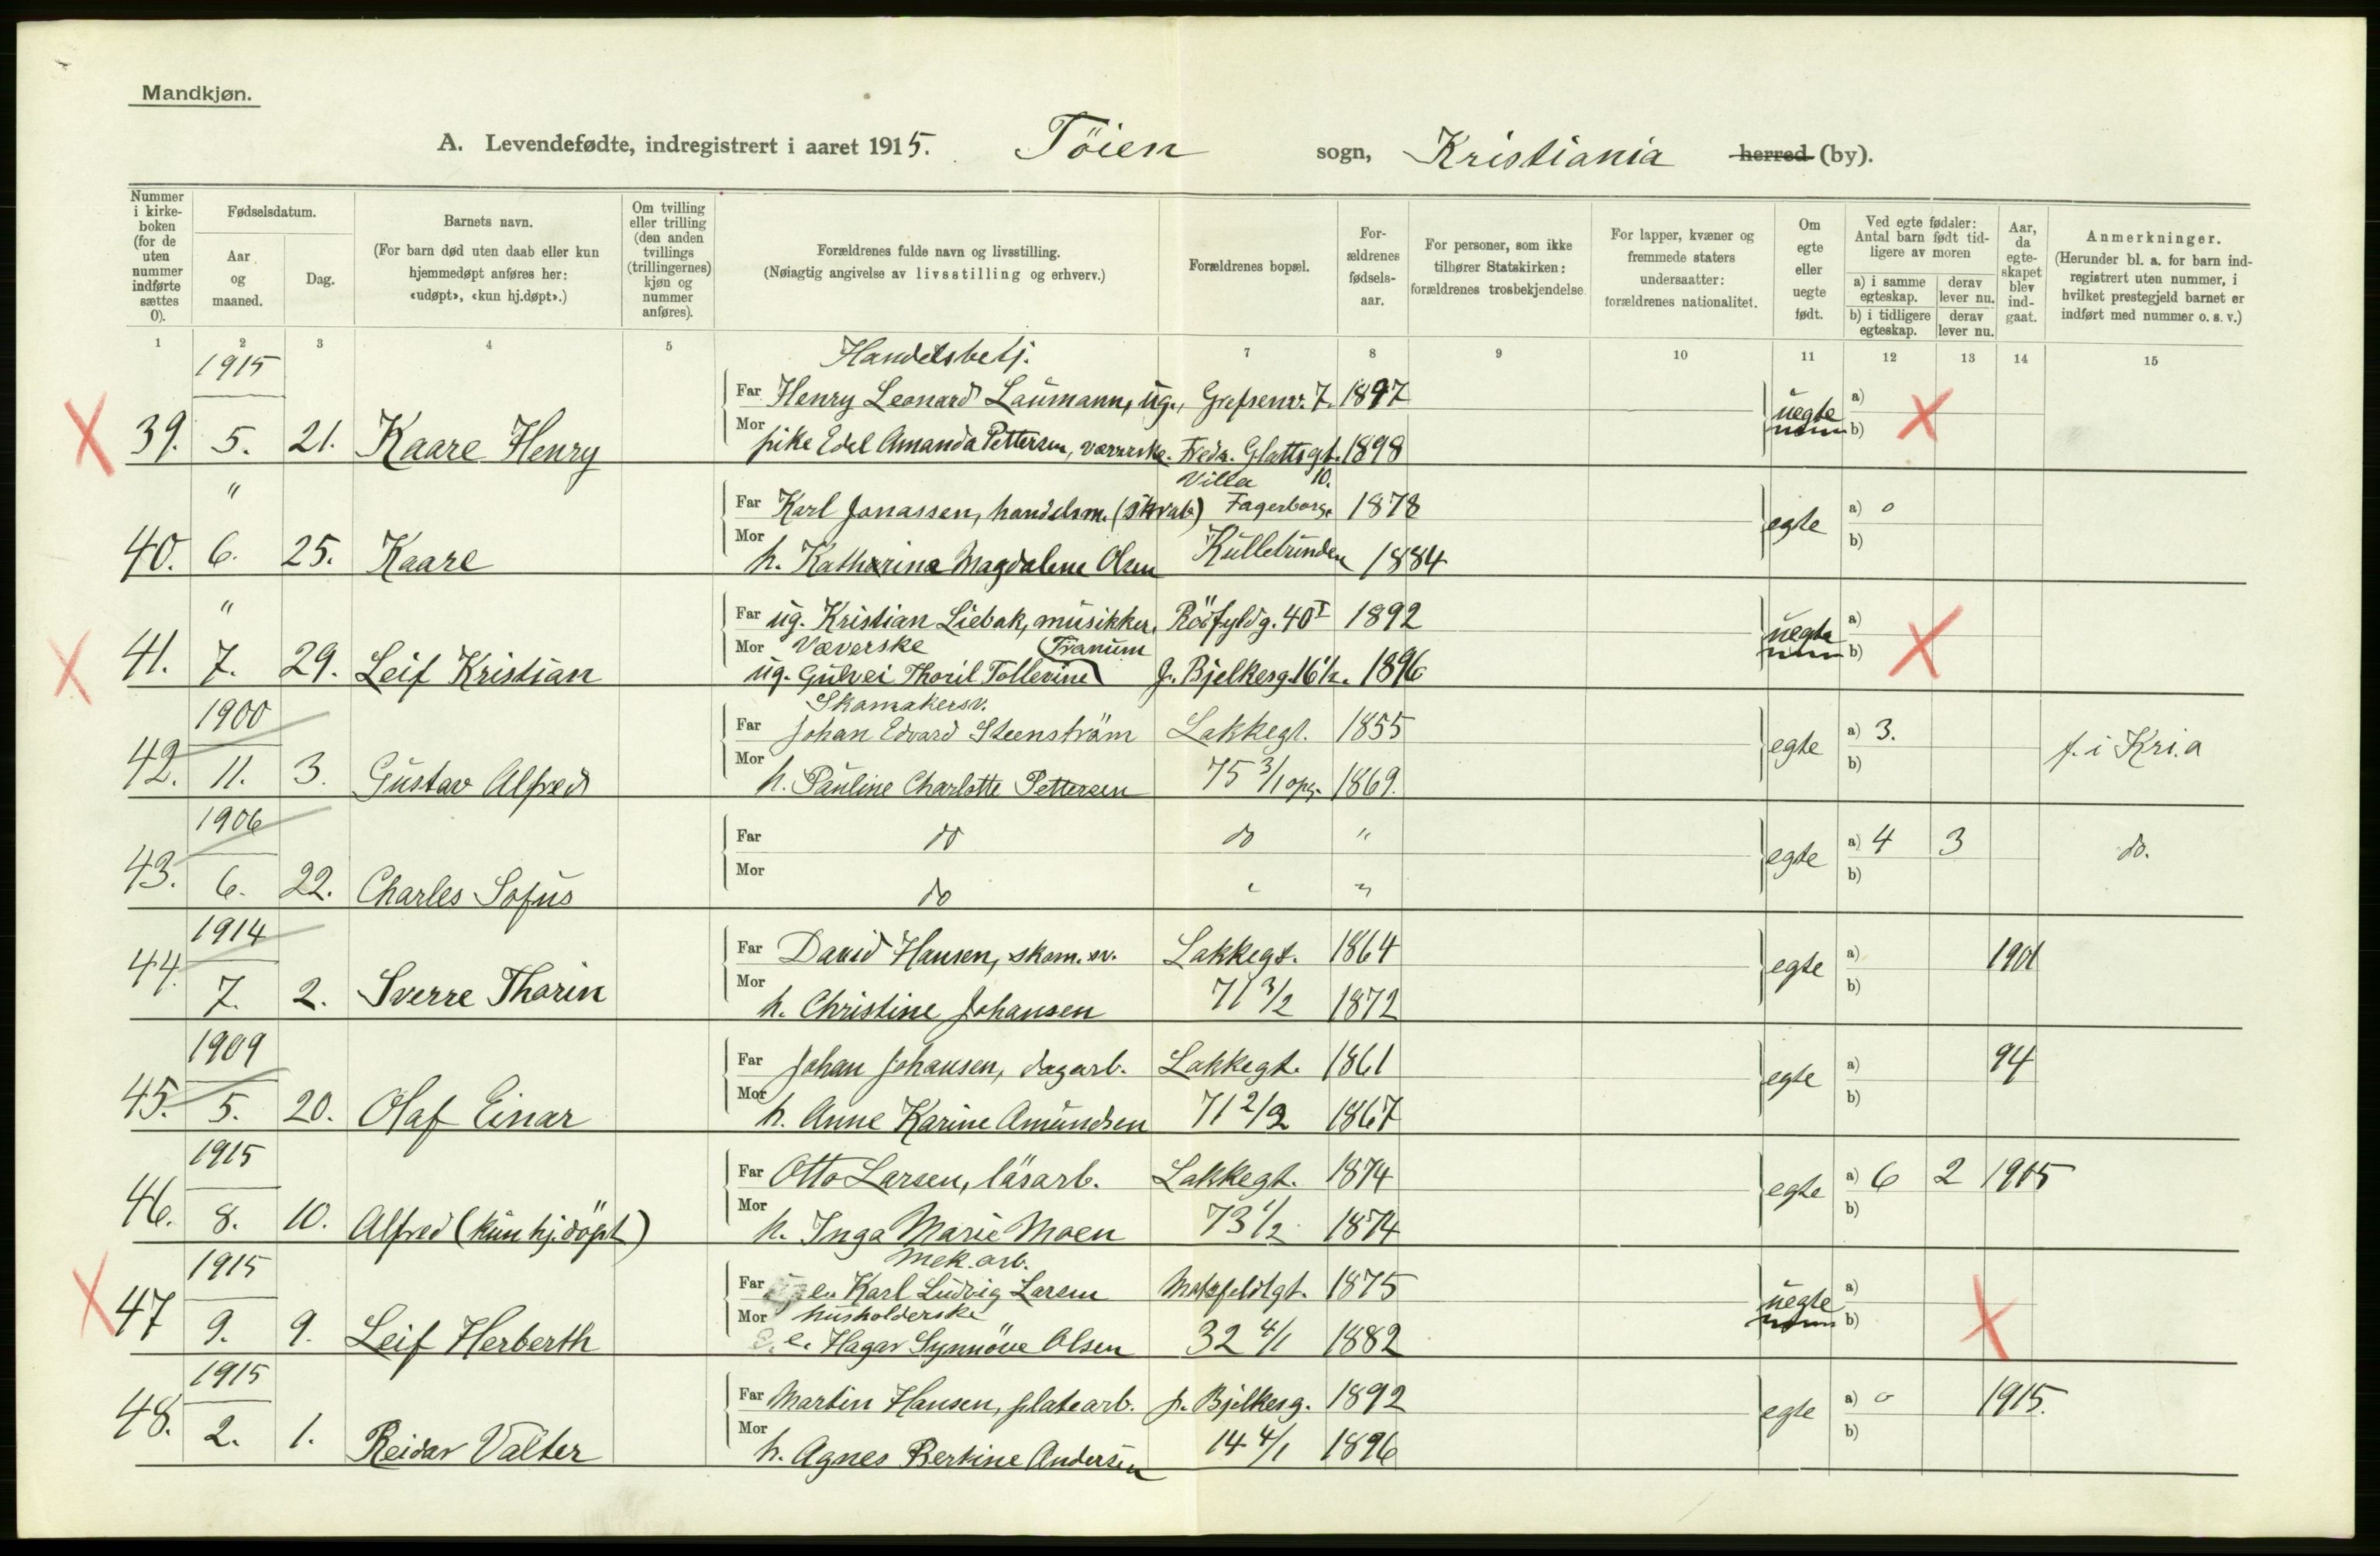 Mandkjøn.
A. Levendefødte, indregistrert i aaret 1915. Töien sogn, Kristiania herred (by).
Nummer i kirke-boken (for de uten nummer indførte sættes 0).
Fødselsdatum.
Aar og maaned.
Dag.
Barnets navn.
(For barn død uten daab eller kun hjemmedøpt anføres her: «udøpt», «kun hj.døpt».)
Om tvilling eller trilling (den anden tvillings (trillingernes) kjøn og nummer anføres).
Forældrenes fulde navn og livsstilling.
(Nøiagtig angivelse av livsstilling og erhverv.)
Forældrenes bopæl.
For-ældrenes fødsels-aar.
For personer, som ikke tilhører Statskirken: forældrenes trosbekjendelse.
For lapper, kvæner og fremmede staters undersaatter: forældrenes nationalitet.
Om egte eller uegte født.
Ved egte fødsler: Antal barn født tid-ligere av moren
a) i samme egteskap.
derav lever nu.
b) i tidligere egteskap.
derav lever nu.
Aar, da egte-skapet blev ind-gaat.
Anmerkninger.
(Herunder bl. a. for barn ind-registrert uten nummer, i hvilket prestegjeld barnet er indført med nummer o. s. v.)
1 2 3 4 5 7 8 9 10 11 12 13 14 15
1915 Handelsbetj.
Far Henry Leonard Laumann, ug., Grefsenv. 7. 1897 uegte a)
39. 5. 21. Kaare Henry Mor pike Edel Amanda Pettersen, væverske. Fredr. Glattsgt. 10. 1898 b)
" Far Karl Jonassen, handelsm. (skrab) Villa Fagerborg. 1878 egte a) 0
40. 6. 25. Kaare Mor h. Katharina Magdalene Olsen Kulletunden 1884 b)
" Far ug. Kristian Liebak, musikker, Rödfyldg. 40 I 1892 uegte a)
Mor Væverske Franum b)
41. 7. 29. Leif Kristian ug. Gulvei Thoril Tollevine J. Bjelkesg. 16 1/2. 1896
1900 Skomakersv.
Far Johan Edvard Steenström Lakkegt. 1855 egte a) 3. f. i Kri.a
42. 11. 3. Gustav Alfred Mor h. Pauline Charlotte Pettersen 75 3/1 opg. 1869. b)
1906 Far do do " egte a) 4 3 do.
43. 6. 22. Charles Sofus Mor do " " b)
1914 Far David Hansen, skom. sv. Lakkegt. 1864 egte a) 1901
44. 7. 2. Sverre Thorin Mor h. Christine Johansen 71 3/2 1872 b)
1909 Far Johan Johansen, dagarb. Lakkegt. 1861 egte a) 94
45. 5. 20. Olaf Einar Mor h. Anne Karine Amundsen 71 2/2 1867 b)
1915 Far Otto Larsen, läsarb. Lakkegt. 1874 egte a) 6 2 1905
46. 8. 10. Alfred (kun hj. döpt) Mor h. Inga Marie Moen 73 1/2 1874 b)
1915 Mek. arb.
Far e. Karl Ludvig Larsen Motzfeldtgt. 1875 uegte a)
Mor husholderske b)
47 9. 9. Leif Herberth e. Hagar Synnöve Olsen 32 4/1 1882
1915 Far Martin Hansen, platearb. J. Bjelkesg. 1892 egte a) 0 1915.
48. 2. 1. Reidar Valter Mor h. Agnes Bertine Andersen 14 4/1 1896 b)